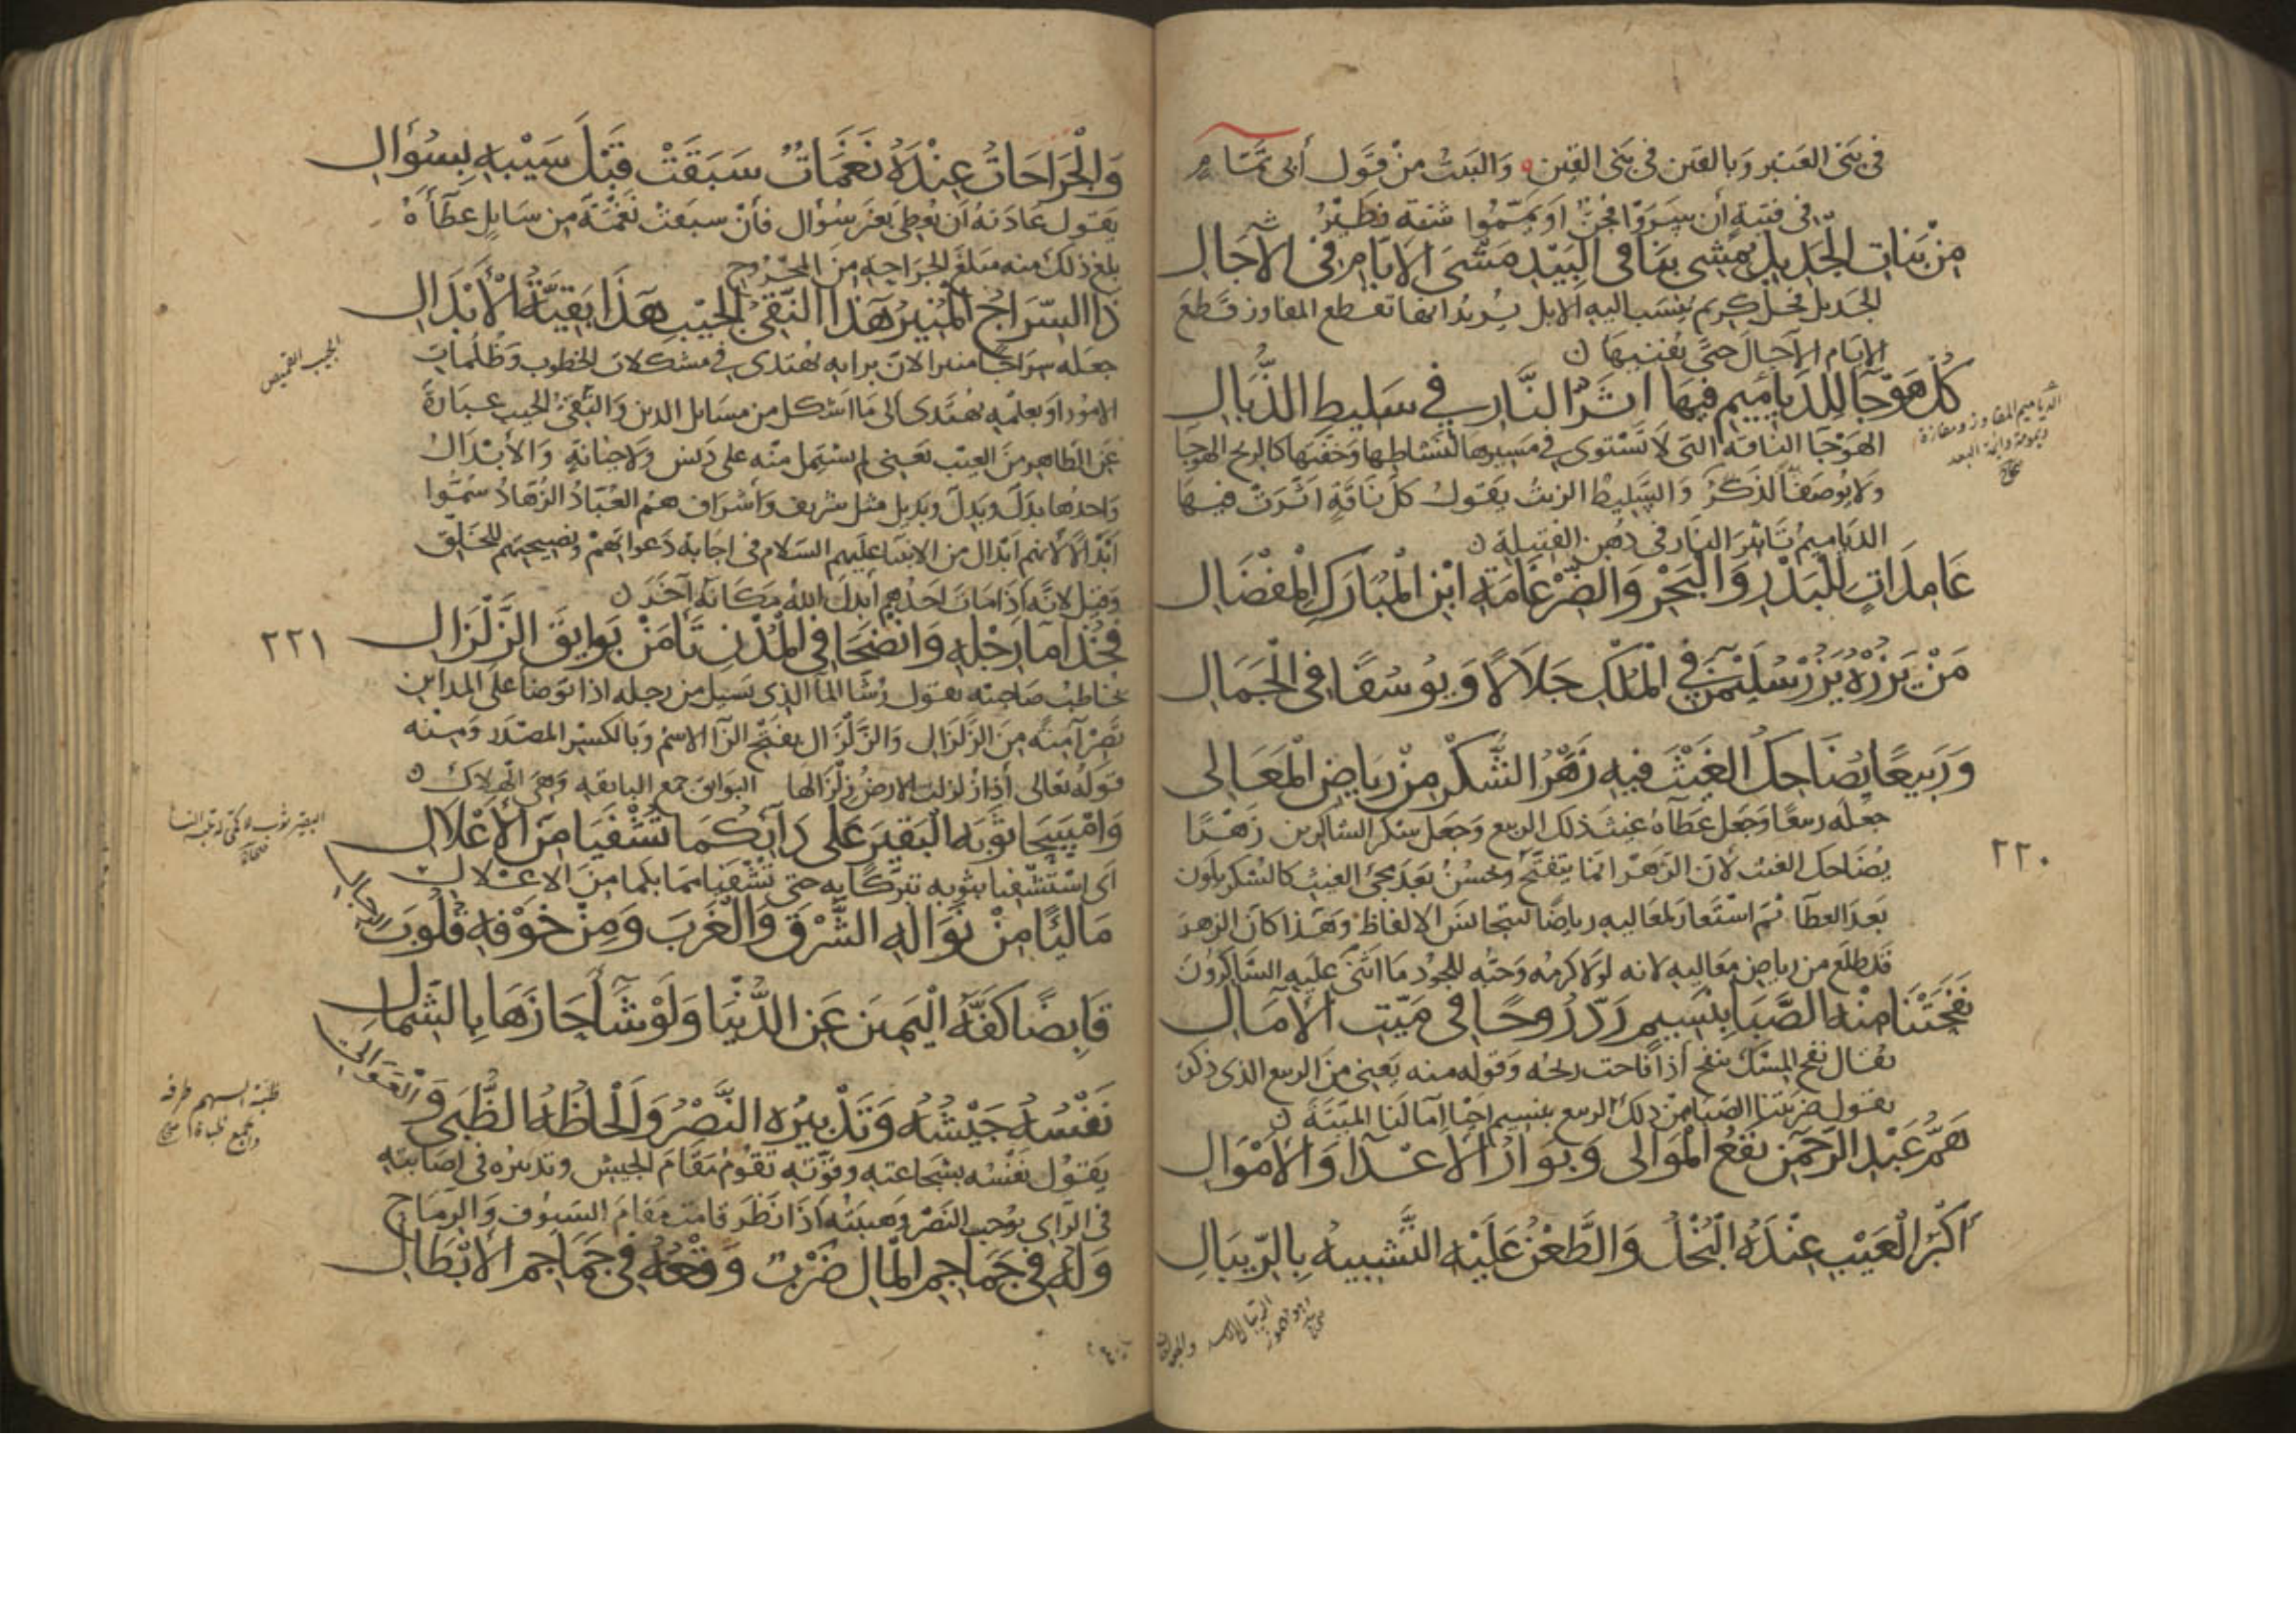 في بني العنبر وبالقين في بني القين والبيت من قول أبي تمام
في فتية إن سروا فجن أو يمموا شقة فطير
مِنْ بَنَاتِ الْجَدِيلِ تَمْشِى بِنَا فى الْبِيْدِ مَشْىَ الْأَيَّامِ فى الْآجَالِ
الجديل فحل كريم ينسب اليه الابل يريد انها تقطع المفاوز قطع
الايام الآجال حتى تفنيها
كُلُّ هَوْجَا لِلدَّيَامِيمِ فِيهَا اَثَرُ النَّارِ فِي سَلِيطِ الذُّبَالِ
الهوجا الناقة التى لا تستوى فى مسيرها لنشاطها وخفتها كالريح الهوجا
ولا يوصف الذكر والسليط الزيت يقول كل ناقة اثرت فيها
الدياميم تاثير النار فى دهن الفتيلة
عَامِدَاتٍ لِلْبَدْرِ وَالْبَحْرِ وَالضِّرْغَامَةِ ابْنِ الْمُبَارَكِ الْمِفْضَالِ
مَنْ يَزُرْهُ يَزُرْ سُلَيْمٰنَ فِي الْمُلْكِ جَلَالًا وَيُوسُفًا فِى الْجَمَالِ
وَرَبِيعًا يُضَاحِكُ الْغَيْثَ فِيهِ زَهَرُ الشُّكْرِ مِنْ رِيَاضِ الْمَعَالِى
جعله ربيعا وجعل عطآه غيث ذلك الربيع وجعل شكر الشاكرين زهرا
يضاحك الغيث لأن الزهر انما يتفتح ويحسن بعد مجئ الغيث كالشكر يكون
بعد العطآ ثم استعار لمعاليه رياضا لتجانس الالفاظ وهذا كان الزهر
قد طلع من رياض معاليه لانه لولا كرمه وحبه للجود ما اثنى عليه الشاكرون
نَفَحَتْنَا مِنْهُ الصَّبَا بِنَسِيمٍ رَدَّ رُوحًا فى مَيِّتِ الْآمَالِ
يقال نفح المسك ينفح اذا فاحت ريحه وقوله منه يعنى من الربيع الذى ذكره
يقول ضربتنا الصبا من ذلك الربيع بنسيم احيا آمالنا الميتة
هَمُّ عَبْدِ الرَّحْمٰنِ نَفْعُ الْمَوَالى وَبَوَارُ الْأَعْدَآ وَالْأَمْوَالِ
أَكْبَرُ الْعَيْبِ عِنْدَهُ الْبُخْلُ وَالطَّعْنُ عَلَيْهِ التَّشْبِيهُ بِالرِّيبَالِ
الدياميم المفاوز ومفازة
ديمومة دائمة البعد
صحاح
٢٢٠
وَالْجَرَاحَاتُ عِنْدَهُ نَغَمَاتٌ سَبَقَتْ قَبْلَ سَيْبِهِ بِسُؤَالِ
يقول عادته أن يعطى بغير سؤال فأن سبقت نغمة من سايل عطآءه
بلغ ذلك منه مبلغ الجراحة من المجروح
ذَا السِّرَاجُ الْمُنِيرُ هٰذَا النَّقِيُّ الْجَيْبِ هٰذَا بَقِيَّةُ الْأَبْدَالِ
جعله سراجا منيرا لان برايه يهتدى في مشكلات الخطوب وظلمات
الامور او بعلمه يهتدى الى ما اشكل من مسايل الدين والنقى الجيب عبارة
عن الطاهر من العيب يعنى لم يشتمل منه على دنس ولا خيانة والأبدال
واحدها بدل وبدل وبديل مثل شريف وأشراف هم العباد الزهاد سموا
أبدالا لانهم ابدال من الانبيا عليهم السلام فى اجابة دعواتهم ونصيحتهم للخلق
وقيل لانه إذا مات احدهم أبدل الله مكانه آخر
فَخُذَا مَآ رِجْلِهِ وَانْضَحَا فِي الْمُدْنِ تَأْمَنْ بَوَايِقَ الزَّلْزَالِ
يخاطب صاحبيه يقول رشا المآ الذى يسيل من رجله اذا توضا على المداين
تصر آمنة من الزلزال والزلزال بفتح الزآ الاسم وبالكسر المصدر ومنه
قوله تعالى إذا زلزلت الارض زلزالها البوايق جمع البايقة وهى الهلاك
وَامْسَحَا ثَوْبَهُ الْبَقِيرَ عَلَى دَآئِكُمَا تُشْفَيَا مِنَ الْأَعْلَالِ
اى استشفيا بثوبه تبركا به حتى تشفيا مما بكما من الاعلال
مَالِيًا مِنْ نَوَالِهِ الشَّرْقَ وَالْغَرْبَ وَمِنْ خَوْفِهِ قُلُوبَ الرِّجَالِ
قَابِضًا كَفَّهُ الْيَمِينَ عَنِ الدُّنْيَا وَلَوْ شَآ حَازَهَا بِالشِّمَالِ
نَفْسُهُ جَيْشُهُ وَتَدْبِيرُهُ النَّصْرُ وَأَلْحَاظُهُ الظُّبَى وَالْعَوَالِى
يقول نفسه بشجاعته وقوته تقوم مقام الجيش وتدبيره فى اصابته
فى الرأى يوجب النصر وهيبته إذا نظر قامت مقام السيوف والرماح
وَلَهُ فِي جَمَاجِمِ الْمَالِ ضَرْبٌ وَقْعُهُ فِي جَمَاجِمِ الْأَبْطَالِ
الجيب القميص
٢٢١
البقير ثوب لا كمى له تلبسه النسا
صحاح
ظبة السهم طرفه
والجمع ظباة